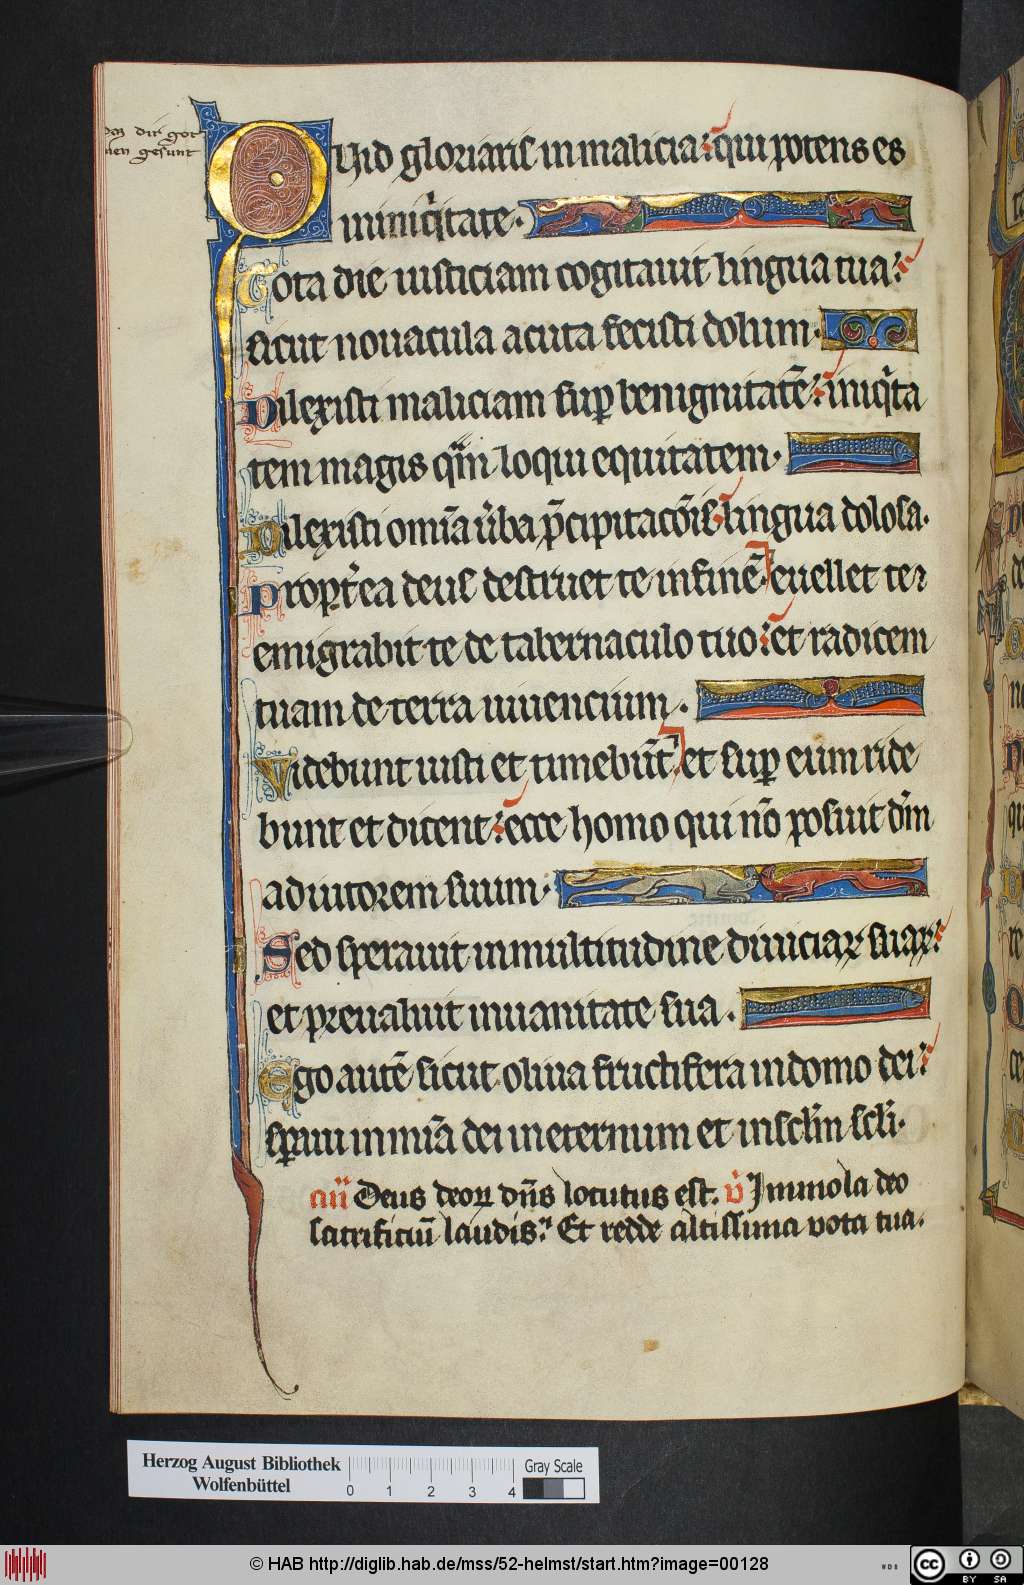 daz dir got
nen gesunt
Quid gloriaris in malicia: qui potens es
in iniq̇itate.
Tota die iusticiam cogitauit lingua tua:
sicut nouacula acuta fecisti dolum.
Dilexisti maliciam sup benignitatē: iniq̇ta
tem magis qm̄ loqui equitatem.
Dilexisti omīa u̇ba p̄cipitacōis: lingua dolosa.
Propt̄ea deus destruet te in finē: euellet te ⁊
emigrabit te de tabernaculo tuo: et radicem
tuam de terra uiuencium.
Videbunt iusti et timebūt: et sup eum ride
bunt et dicent: ecce homo qui nō posuit dm̄
adiutorem suum.
Sed sperauit in multitudine diuiciaꝝ suaꝝ:
et preualuit in uanitate sua.
Ego autē sicut oliua fructifera in domo dei:
sꝑaui in mīa dei in eternum et in sclm̄ scli̅.
an̄ Deus deoꝝ dn̄s locutus est. v̇ Immola deo
sacrificiū laudis. Et redde altissimo vota tua.
Herzog August Bibliothek
Wolfenbüttel
0 1 2 3 4
Gray Scale
© HAB http://diglib.hab.de/mss/52-helmst/start.htm?image=00128
WDB
cc BY SA